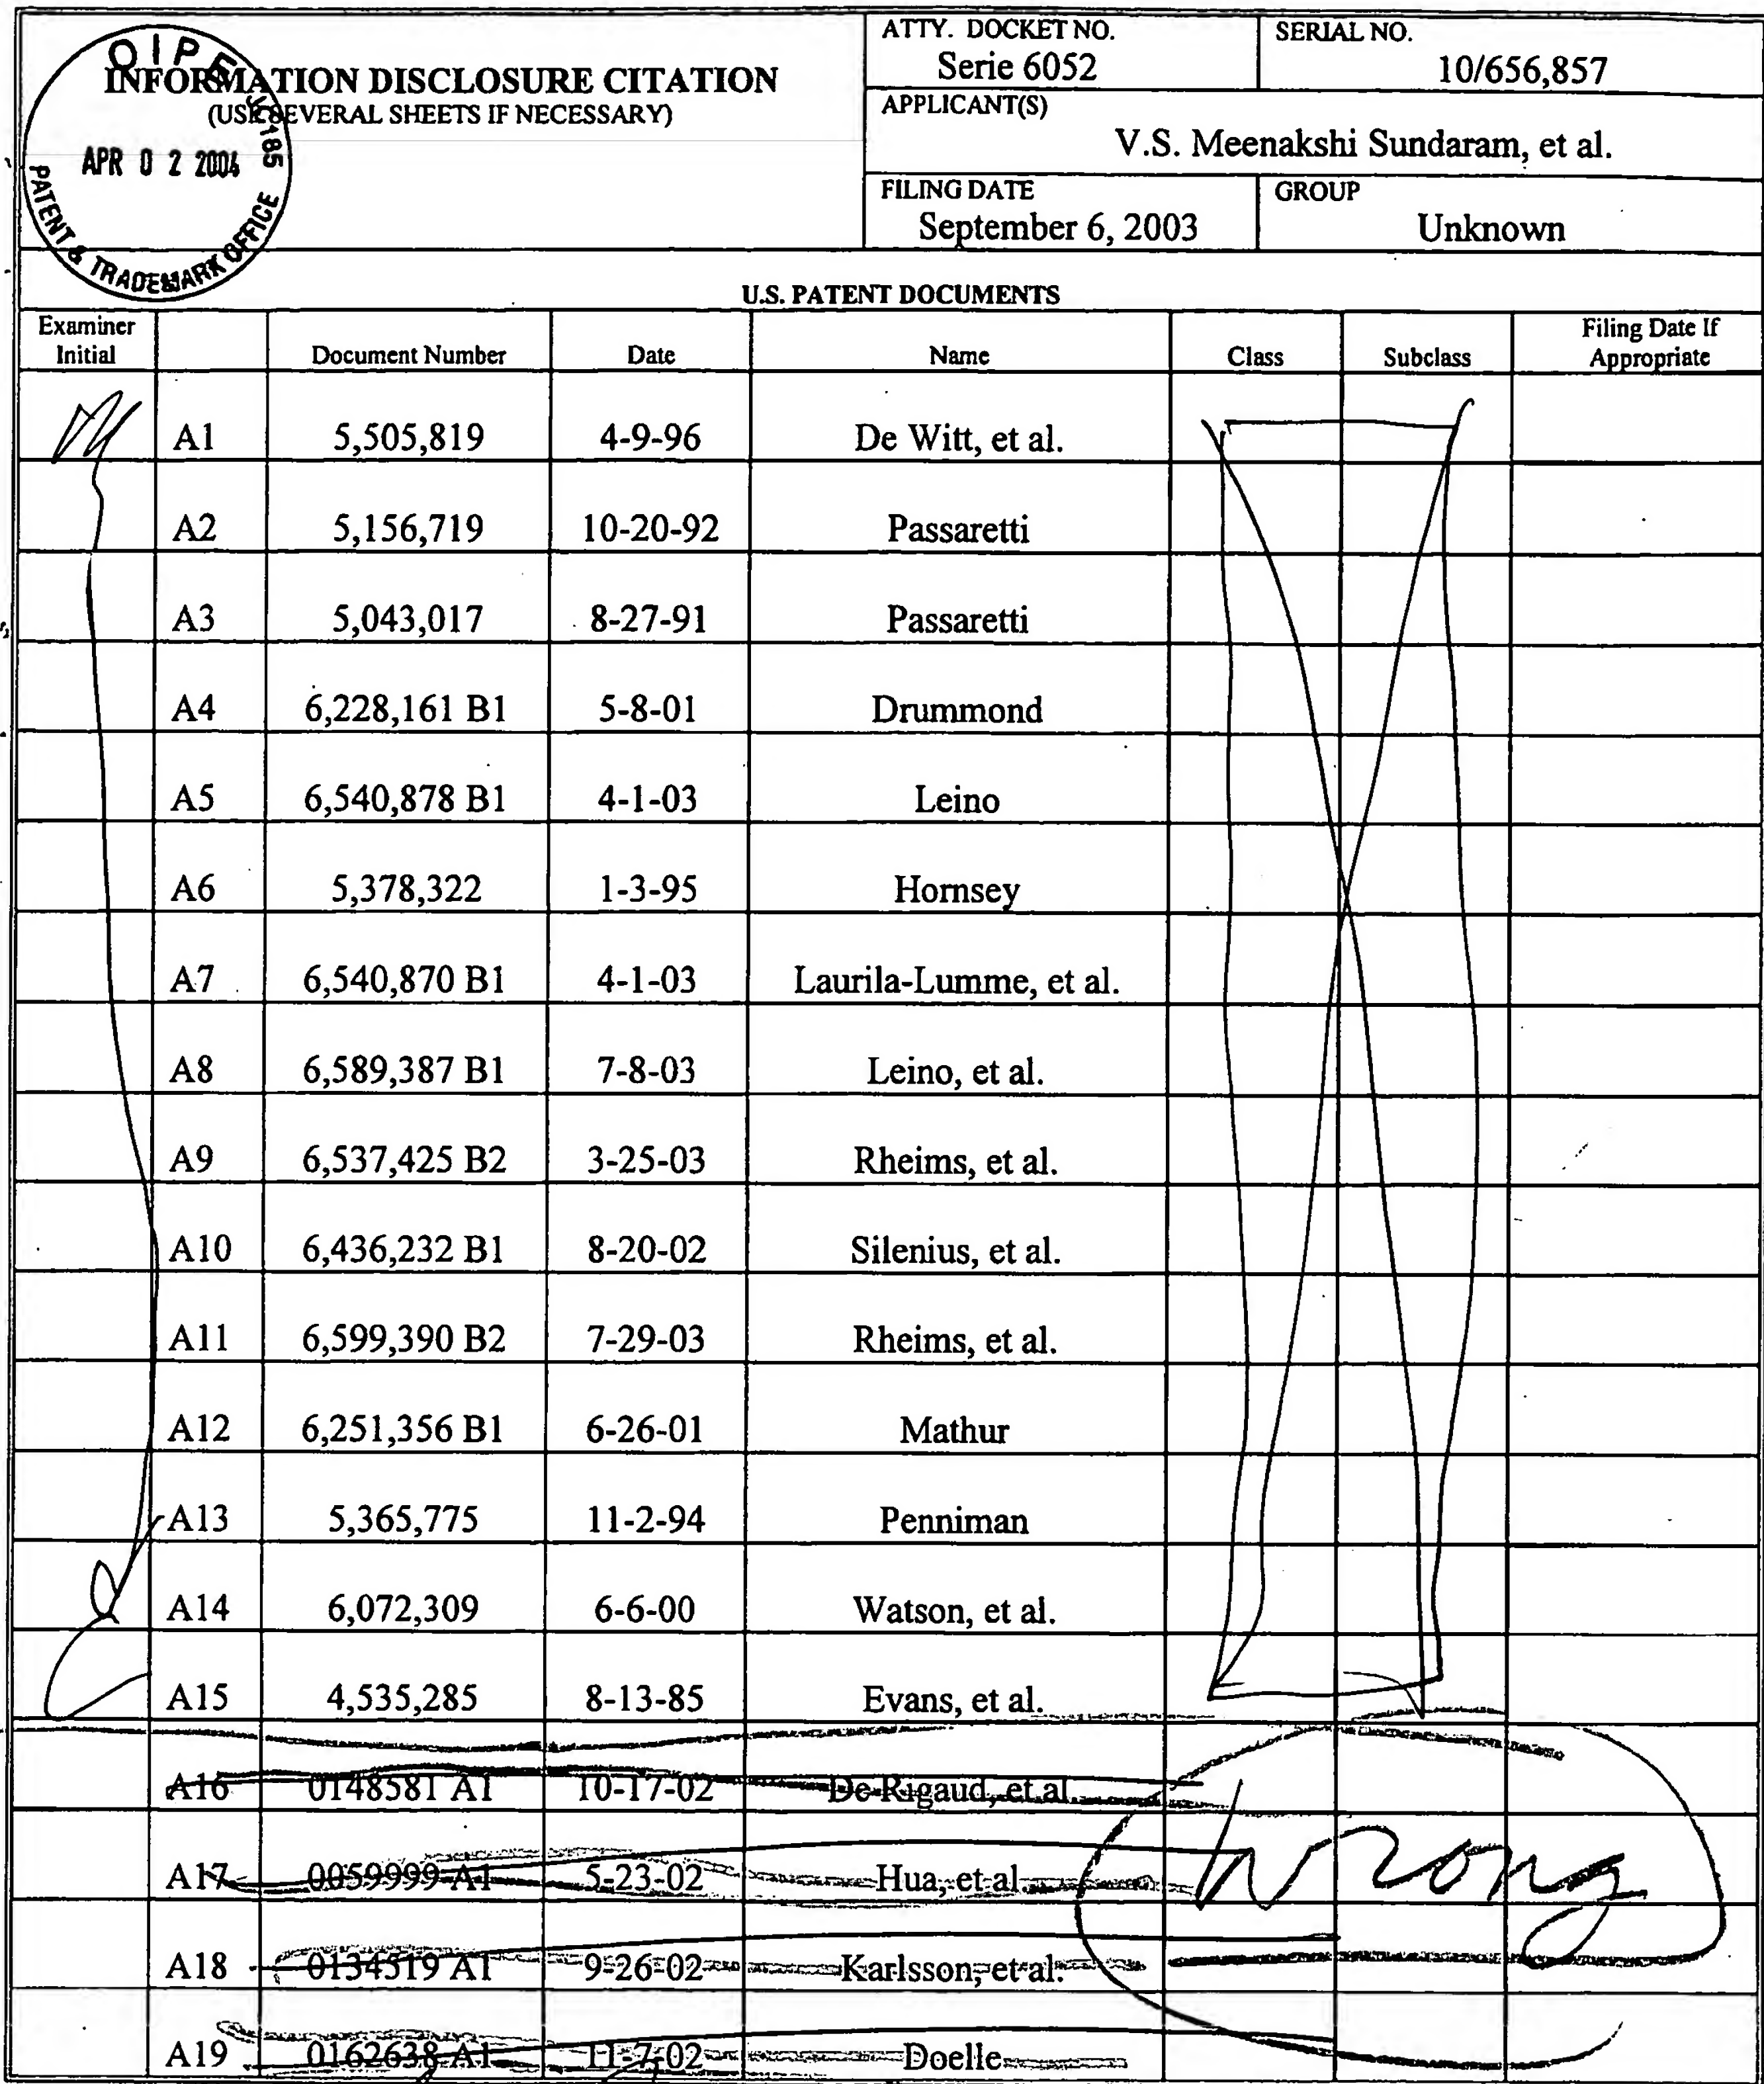 OIPE JC185
APR 0 2 2004
PATENT & TRADEMARK OFFICE
INFORMATION DISCLOSURE CITATION
(USE SEVERAL SHEETS IF NECESSARY)
ATTY. DOCKET NO.
Serie 6052
SERIAL NO.
10/656,857
APPLICANT(S)
V.S. Meenakshi Sundaram, et al.
FILING DATE
September 6, 2003
GROUP
Unknown
U.S. PATENT DOCUMENTS
Examiner Initial Document Number Date Name Class Subclass Filing Date If Appropriate
A1 5,505,819 4-9-96 De Witt, et al.
A2 5,156,719 10-20-92 Passaretti
A3 5,043,017 8-27-91 Passaretti
A4 6,228,161 B1 5-8-01 Drummond
A5 6,540,878 B1 4-1-03 Leino
A6 5,378,322 1-3-95 Hornsey
A7 6,540,870 B1 4-1-03 Laurila-Lumme, et al.
A8 6,589,387 B1 7-8-03 Leino, et al.
A9 6,537,425 B2 3-25-03 Rheims, et al.
A10 6,436,232 B1 8-20-02 Silenius, et al.
A11 6,599,390 B2 7-29-03 Rheims, et al.
A12 6,251,356 B1 6-26-01 Mathur
A13 5,365,775 11-2-94 Penniman
A14 6,072,309 6-6-00 Watson, et al.
A15 4,535,285 8-13-85 Evans, et al.
A16 0148581 A1 10-17-02 De Rigaud, et al.
A17 0059999 A1 5-23-02 Hua, et al.
Wrong
A18 0134519 A1 9-26-02 Karlsson, et al.
A19 0162638 A1 11-7-02 Doelle